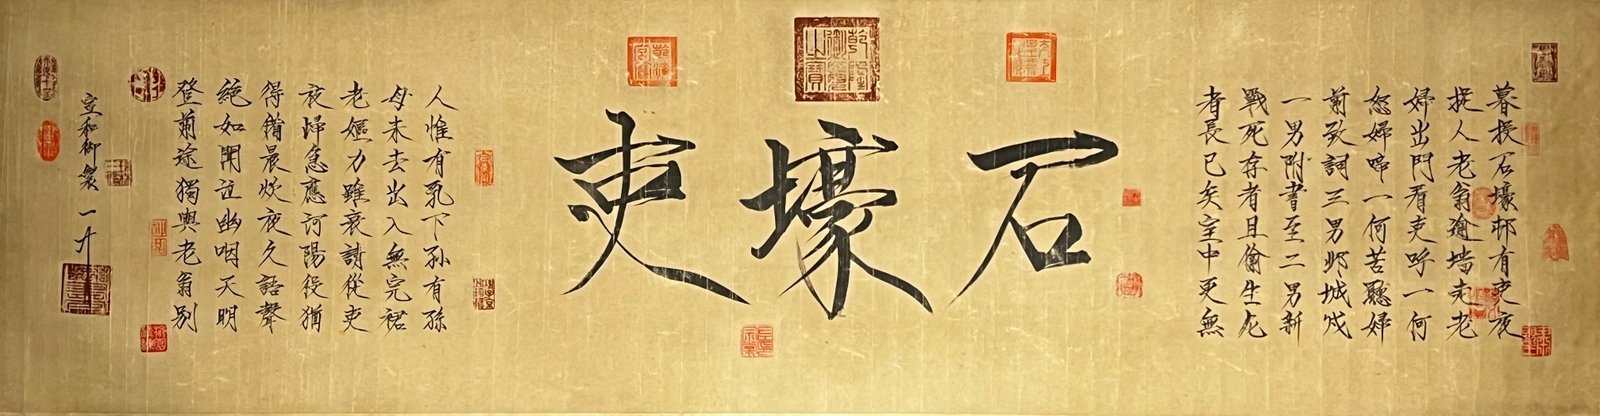 暮投石壕邨有吏夜
捉人老翁逾墻走老
婦出門看吏呼一何
怒婦啼一何苦聽婦
前致詞三男鄴城戍
一男附書至二男新
戰死存者且偷生死
者長已矣室中更無
乾隆御覽之寶
石壕吏
人惟有乳下孫有孫
母未去出入無完裙
老嫗力雖衰請從吏
夜歸急應河陽役猶
得備晨炊夜久語聲
絕如聞泣幽咽天明
登前途獨與老翁別
宣和御製